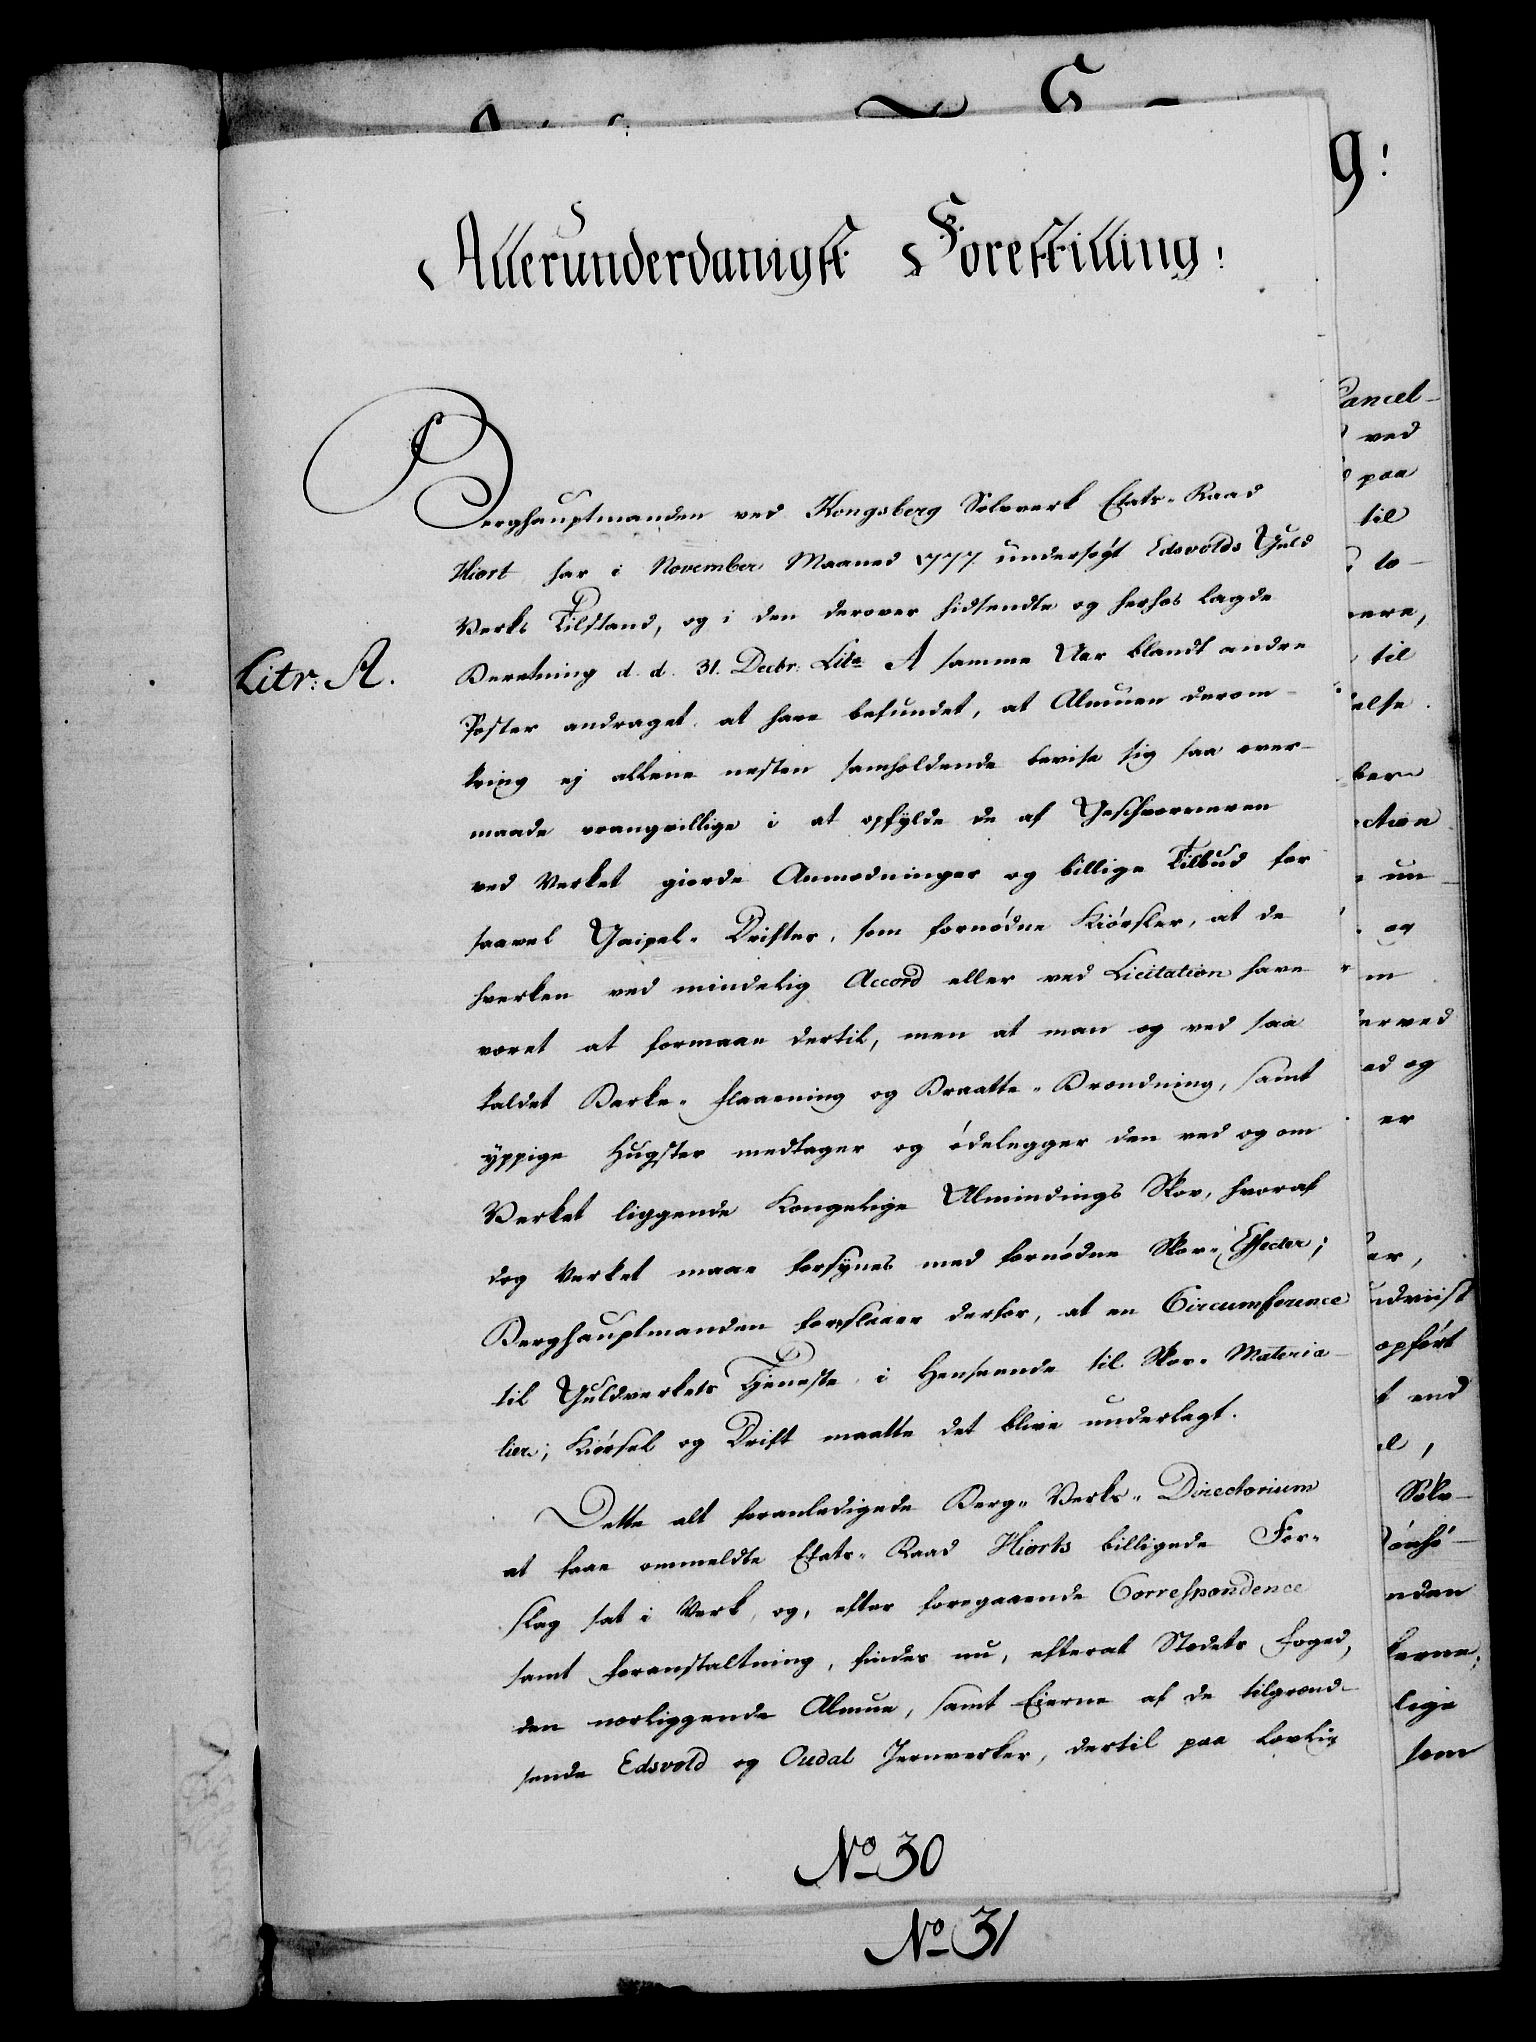 Allerunderdanigst Forestilling!
Berghauptmanden ved Kongsberg Sølvverk Etats-Raad
Hiort har i November Maaned 1777. undersøgt Edsvolds Guld
Verks Tilstand, og i den derover hidsendte og herhos lagde
Litr: A.
Beretning d. d. 31. Decbr: Litr A samme Aar blandt andre
Poster andraget at have befundet, at Almuen derom-
kring ej allene nesten samholdende bevise sig saa over-
maade vrangvillige i at opfylde de af Geschworneren
ved Verket giorde Anmodninger og billige Tilbud for
saavel Gaipel-Drifter, som fornødne Kiørsler, at de
hverken ved mindelig Accord eller ved Licitation have
været at formaae dertil, men at man og ved saa
kaldet Barke-flaaening og Braatte-Brændning, samt
yppige Hugster medtager og ødelegger den ved og om
Verket liggende Kongelige Almindings Skov, hvoraf
dog Verket maae forsynes med fornødne Skov-Effecter;
Berghauptmanden foreslaaer derfor, at en Circumference
til Guldverkets Tjeneste i Henseende til Skov-Materia-
lier, Kiørsel og Drift maatte det blive underlagt.
Dette alt foranledigede Berg-Verks-Directorium
at faae ommeldte Etats-Raad Hiorts billigede For-
slag sat i Verk, og, efter foregaaende Correspondence
samt foranstaltning, findes nu, efterat Stedets Foged,
den nærliggende Almue, samt Eierne af de tilgrænd-
sende Edsvold og Oudal Jernverker, dertil paa lovlig
No 30
No 31
g!
Cancel-
ved
paa
til
to-
til
else
ction
un-
og
m
erved
ad og
er
er,
udviist
opført
t end
Sølv-
ndan
lige
som